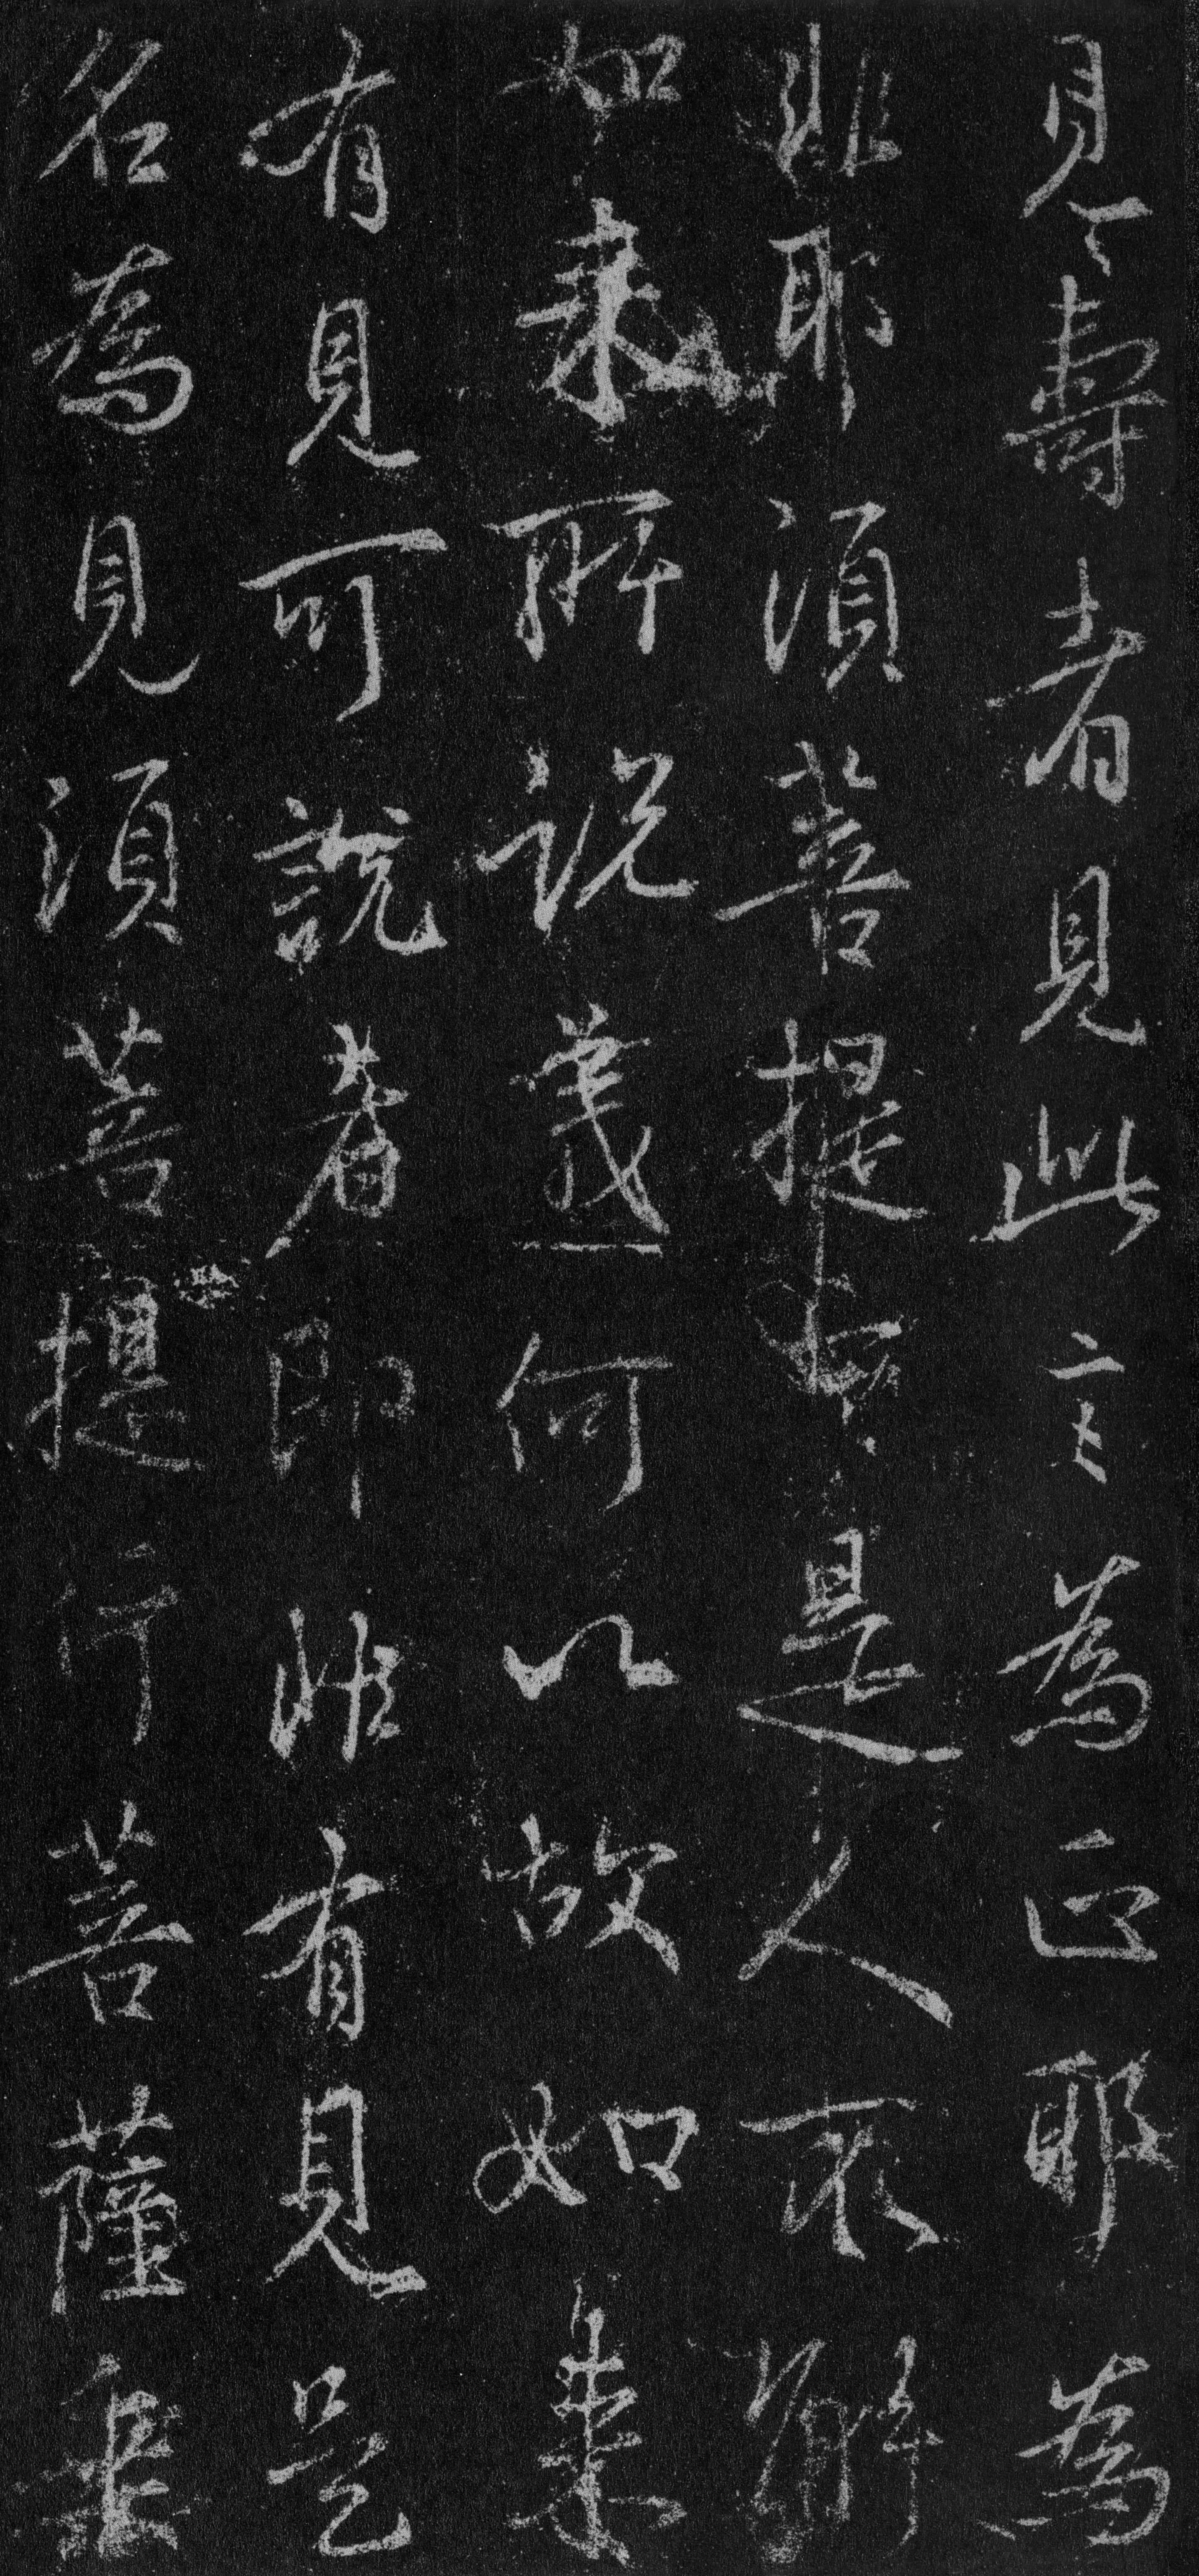 見壽者見此言為正耶為
非耶須菩提是人不解
如來所說義何以故如來
有見可說者即非有見是
名為見須菩提行菩薩乘